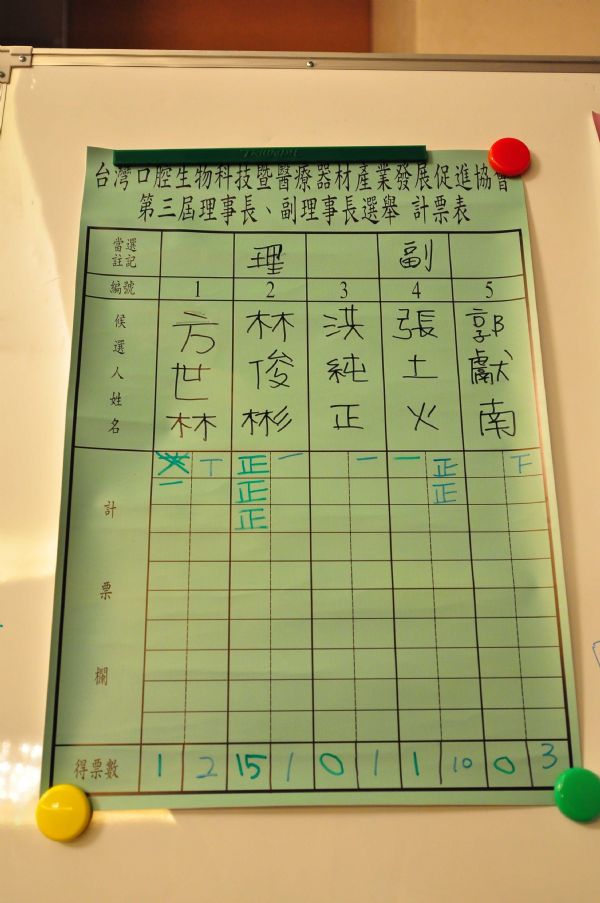 台灣口腔生物科技暨醫療器材產業發展促進協會
第三屆理事長、副理事長選舉 計票表
當選註記 理 副
編號 1 2 3 4 5
候選人姓名 方世林 林俊彬 洪純正 張土火 郭獻南
計票欄 丅 正 一 一 一 正 下
一 正 正
正
得票數 1 2 15 1 0 1 1 10 0 3